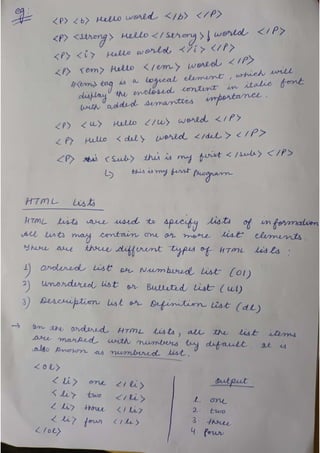 eg:
<P> <b> Hello world </b> </P>
<P> <strong> Hello </strong> world </P>
<P> <i> Hello world </i> </P>
<P> <em> Hello </em> world </P>
<em> tag is a logical element, which will
display the enclosed content in italic font
with added semantics importance.
<P> <u> Hello </u> world </P>
<P> Hello <del> world </del> </P>
<P> <sub> this is my first </sub> </P>
this is my first program
HTML Lists
HTML lists are used to specify lists of information
All lists may contain one or more list elements.
There are three different types of HTML lists :
1) Ordered list or Numbered list (Ol)
2) Unordered list or Bulleted list (ul)
3) Description list or Definition list (dl)
→ In the ordered HTML lists, all the list items
are marked with numbers by default. It is
also known as numbered list.
<ol>
<li> one </li>
<li> two </li>
<li> three </li>
<li> four </li>
</ol>
Output
1. one
2. two
3 three
4 four